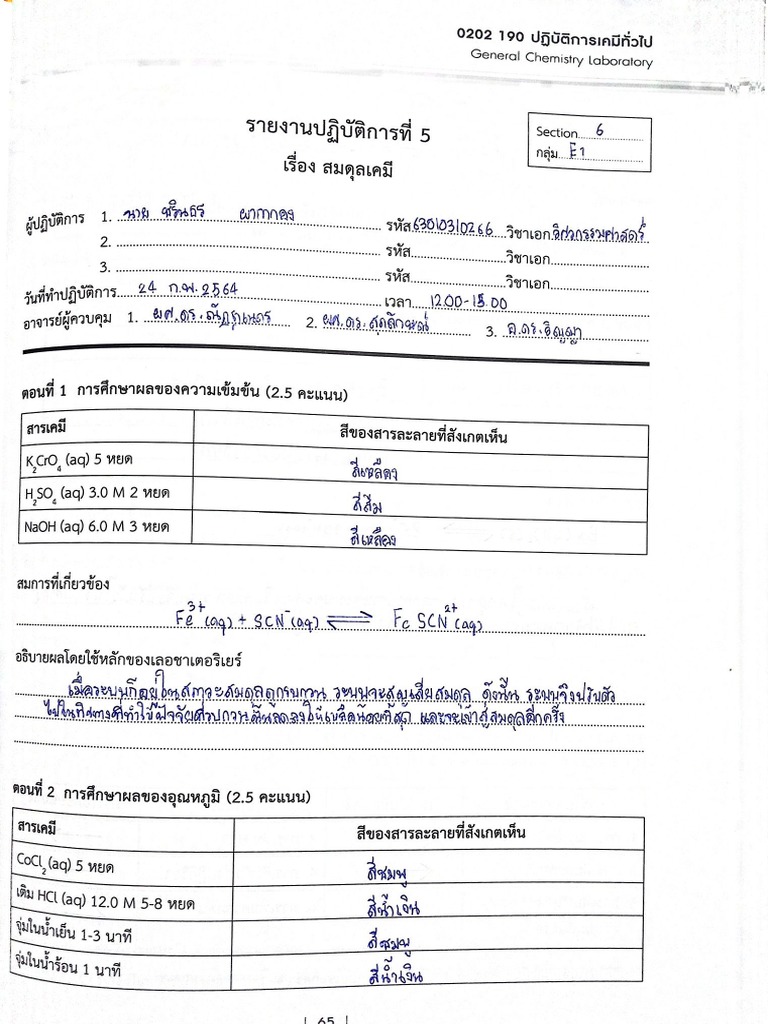 0202 190 ปฏิบัติการเคมีทั่วไป
General Chemistry Laboratory
รายงานปฏิบัติการที่ 5
เรื่อง สมดุลเคมี
Section 6
กลุ่ม E1
ผู้ปฏิบัติการ 1. นาย ชรินธร ผากาทอง รหัส 63010310266 วิชาเอก วิศวกรรมศาสตร์
2. รหัส วิชาเอก
3. รหัส วิชาเอก
วันที่ทำปฏิบัติการ 24 ก.พ. 2564 เวลา 12.00-15.00
อาจารย์ผู้ควบคุม 1. ผศ.ดร. 2. ผศ.ดร.สุดลักษณ์ 3. อ.ดร.ธิญญา
ตอนที่ 1 การศึกษาผลของความเข้มข้น (2.5 คะแนน)
สารเคมี สีของสารละลายที่สังเกตเห็น
K₂CrO₄ (aq) 5 หยด สีเหลือง
H₂SO₄ (aq) 3.0 M 2 หยด สีส้ม
NaOH (aq) 6.0 M 3 หยด สีเหลือง
สมการที่เกี่ยวข้อง
Fe³⁺(aq) + SCN⁻(aq) ⇌ FeSCN²⁺(aq)
อธิบายผลโดยใช้หลักของเลอชาเตอริเยร์
เมื่อระบบที่อยู่ในสภาวะสมดุลถูกรบกวน ระบบจะสูญเสียสมดุล ดังนั้น ระบบจึงปรับตัว
ไปในทิศทางที่ทำให้ปัจจัยรบกวนนั้นลดลงให้เหลือน้อยที่สุด และจะเข้าสู่สมดุลอีกครั้ง
ตอนที่ 2 การศึกษาผลของอุณหภูมิ (2.5 คะแนน)
สารเคมี สีของสารละลายที่สังเกตเห็น
CoCl₂ (aq) 5 หยด สีชมพู
เติม HCl (aq) 12.0 M 5-8 หยด สีน้ำเงิน
จุ่มในน้ำเย็น 1-3 นาที สีชมพู
จุ่มในน้ำร้อน 1 นาที สีน้ำเงิน
| 65 |